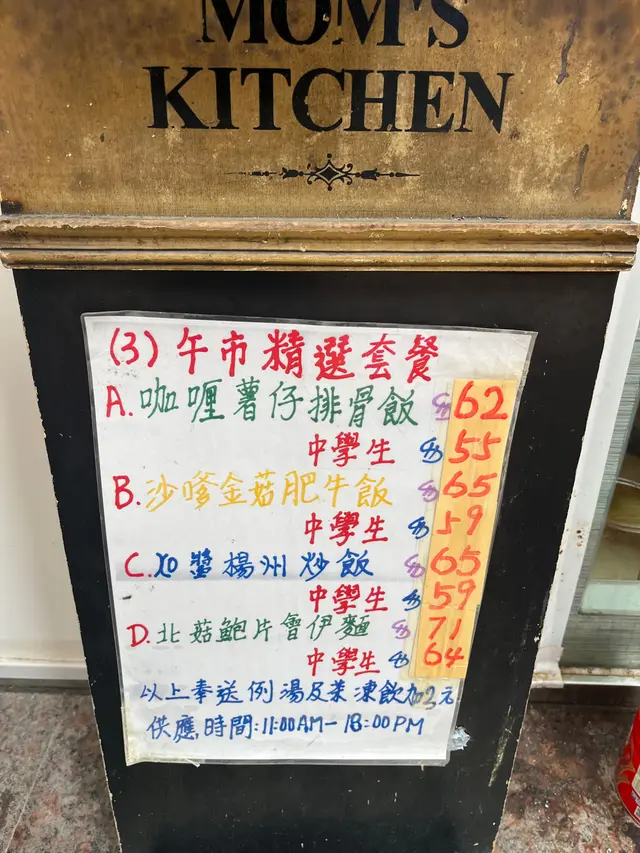 MOM'S
KITCHEN
(3) 午市精選套餐
A. 咖喱薯仔排骨飯 $62
中學生 $55
B. 沙嗲金菇肥牛飯 $65
中學生 $59
C. XO醬楊州炒飯 $65
中學生 $59
D. 北菇鮑片會伊麵 $71
中學生 $64
以上奉送例湯及茶 凍飲加3元
供應時間:11:00AM-18:00PM